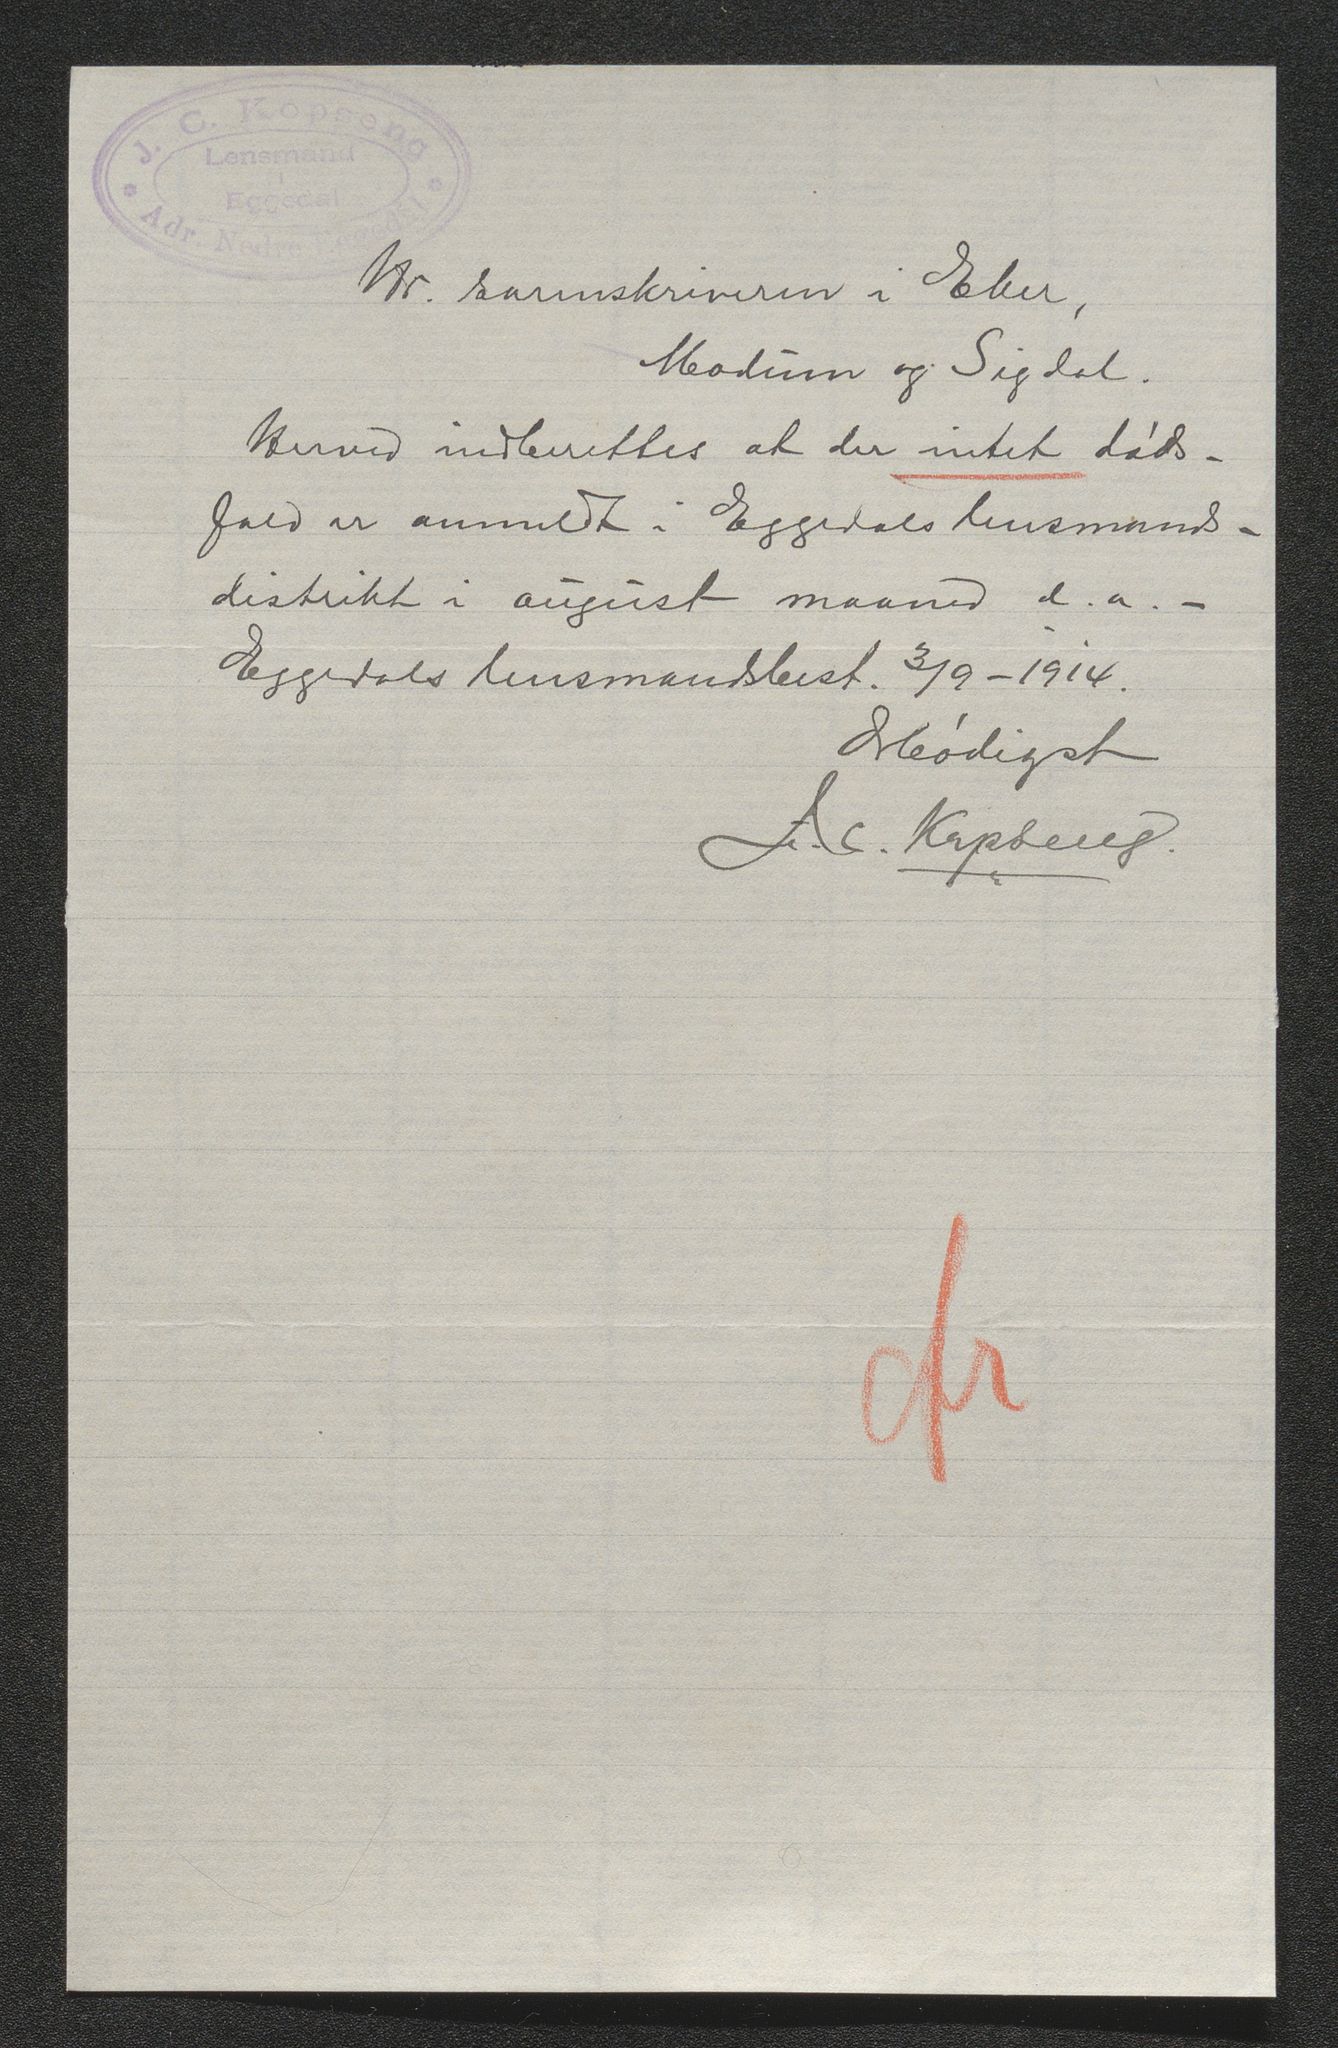 J. C. Kopseng
Lensmand
i
Eggedal
Adr. Nedre Eggedal
Hr. sorenskriveren i Eker,
Modum og Sigdal.
Herved indberettes at der intet døds-
fald er anmeldt i Eggedals lensmands-
distrikt i august maaned d. a. -
Eggedals lensmandsbest. 3/9 - 1914.
Ærbødigst
J. C. Kopseng.